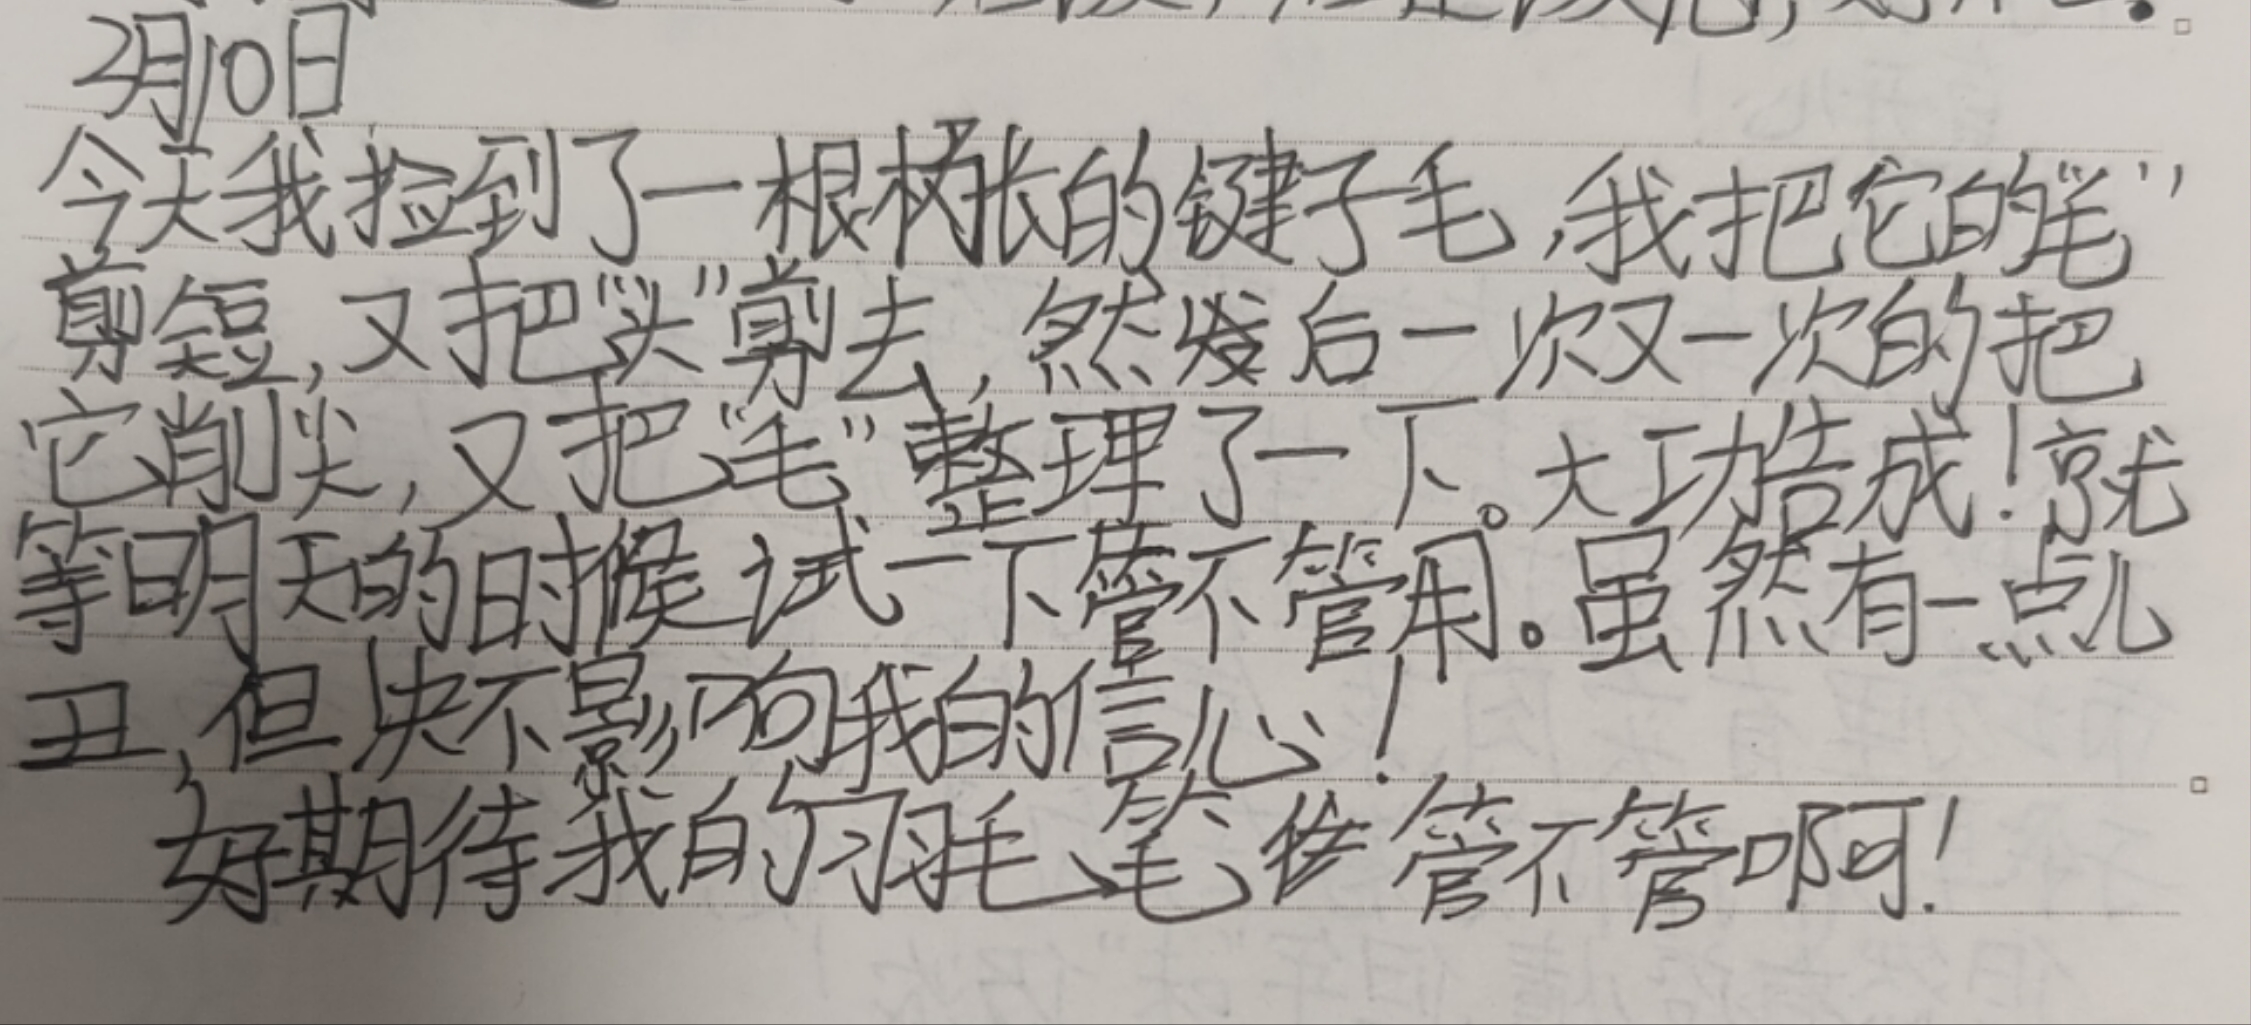 2月10日
今天我捡到了一根长的键子毛,我把它的"毛"
剪短,又把"头"剪去,然后一次又一次的把
它削尖,又把"毛"整理了一下。大功告成!就
等明天的时候试一下管不管用。虽然有一点儿
丑,但决不影响我的信心!
好期待我的羽毛笔管不管啊!